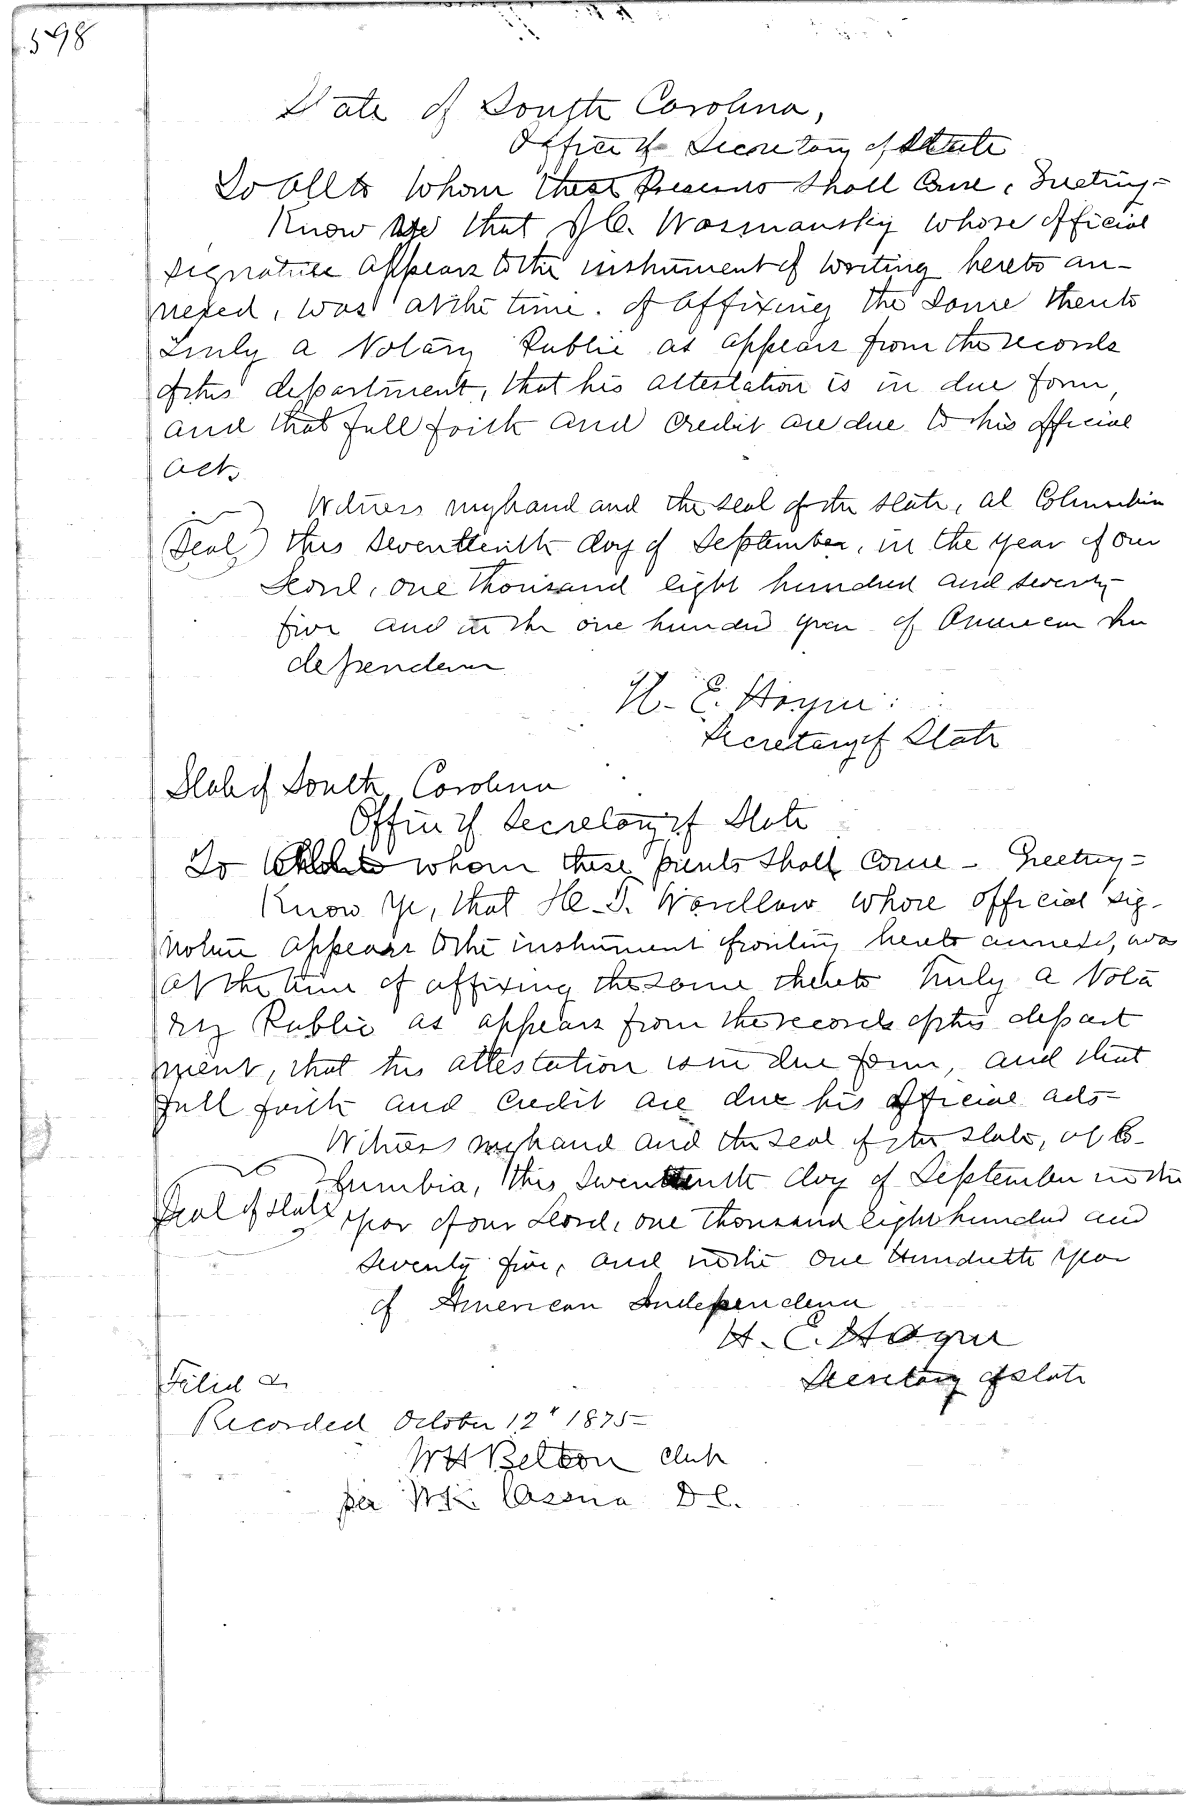 598
State of South Carolina,
Office of Secretary of State
To All to Whom these Presents Shall Come, Greeting=
Know Ye that J.C. Wosmansky whose official
signature appears to the instrument of writing hereto an-
nexed, was at the time. of affixing the same thereto
Truly a Notary Public as appears from the records
of this department, that his attestation is in due form,
and that full faith and credit are due to his official
acts
Witness my hand and the seal of the state, at Columbia
(Seal) this seventeenth day of September, in the year of our
Lord, one thousand eight hundred and seventy-
five and in the one hundred year of American In
dependence
H. E. Hayne
Secretary of State
State of South Carolina
Office of Secretary of State
To All to whom these presents shall come - Greeting=
Know Ye, that H. T. Wardlaw whose official sig-
nature appears to the instrument of writing hereto annexed, was
at the time of affixing the same thereto Truly a Nota
ry Public as appears from the records of this depart
ment, that his attestation is in due form, and that
full faith and credit are due his official acts-
Witness my hand and the seal of the state, at Co-
lumbia, this seventeenth day of September in the
Seal of State year of our Lord, one thousand eight hundred and
seventy five, and in the one Hundreth year
of American Independence
H. E. Hayne
Secretary of State
Filed &
Recorded October 12" 1875-
WH Belton Clerk
per WK. D C.